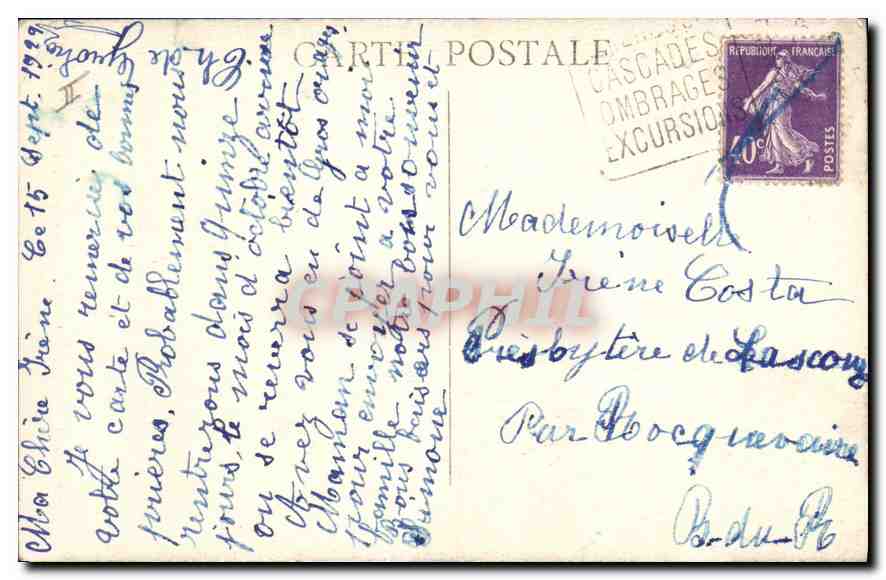 CARTE POSTALE
CASCADES
OMBRAGES
EXCURSIONS
REPUBLIQUE FRANÇAISE
40c
POSTES
Mademoiselle
Irène Costa
Presbytère de Lascours
Par Rocquevaire
B-du-R
Ma Chère Irène. Le 15 Sept. 1929
II
Je vous remercie de
votre carte et de vos bonnes
prières, Probablement nous
rentrerons dans quinze
jours, le mois d'octobre arrive
on se reverra bientôt
Avez vous eu de gros orages
Maman se joint a moi
pour envoyer a votre
famille notre bon souvenir
Bons baisers pour vous et
Simone
CPAPHIL